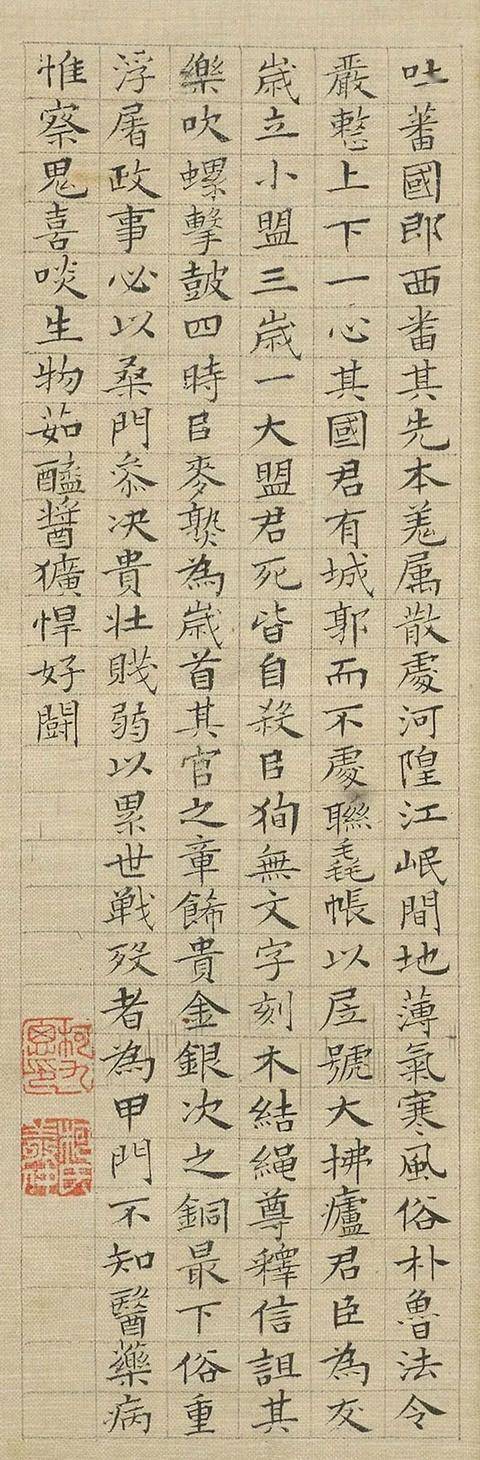 吐蕃國郎西蕃其先本羌属散處河隍江岷間地薄氣寒風俗朴魯法令
嚴整上下一心其國君有城郭而不處聯毳帳以居號大拂廬君臣為友
歳立小盟三歳一大盟君死皆自殺㠯狥無文字刻木結繩尊釋信詛其
樂吹螺擊皷四時㠯麥熟為歳首其官之章餙貴金銀次之銅最下俗重
浮屠政事必以桑門叅决貴壮賤弱以累世戦歿者為甲門不知醫藥病
惟察鬼喜啖生物茹醯醬獷悍好闘
柯九思印